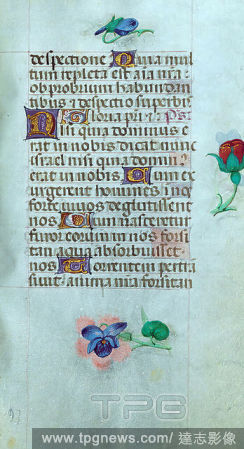 despectione Quia mul
tum repleta est aīa nr̄a
obprobrium habundan
tibus & despectio superbis
Gloria pr̄i & Ps̄
Nisi quia dominus e
rat in nobis dicat nunc
israel nisi quia domin9
erat in nobis Cum ex
urgerent homines in nos
forte uiuos deglutissent
nos Cum irasceretur
furor eorum in nos forsi
tan aqua absorbuisset
nos Torrentem pertra
siuit anima nr̄a forsitan
TPG
www.tpgnews.com/達志影像/